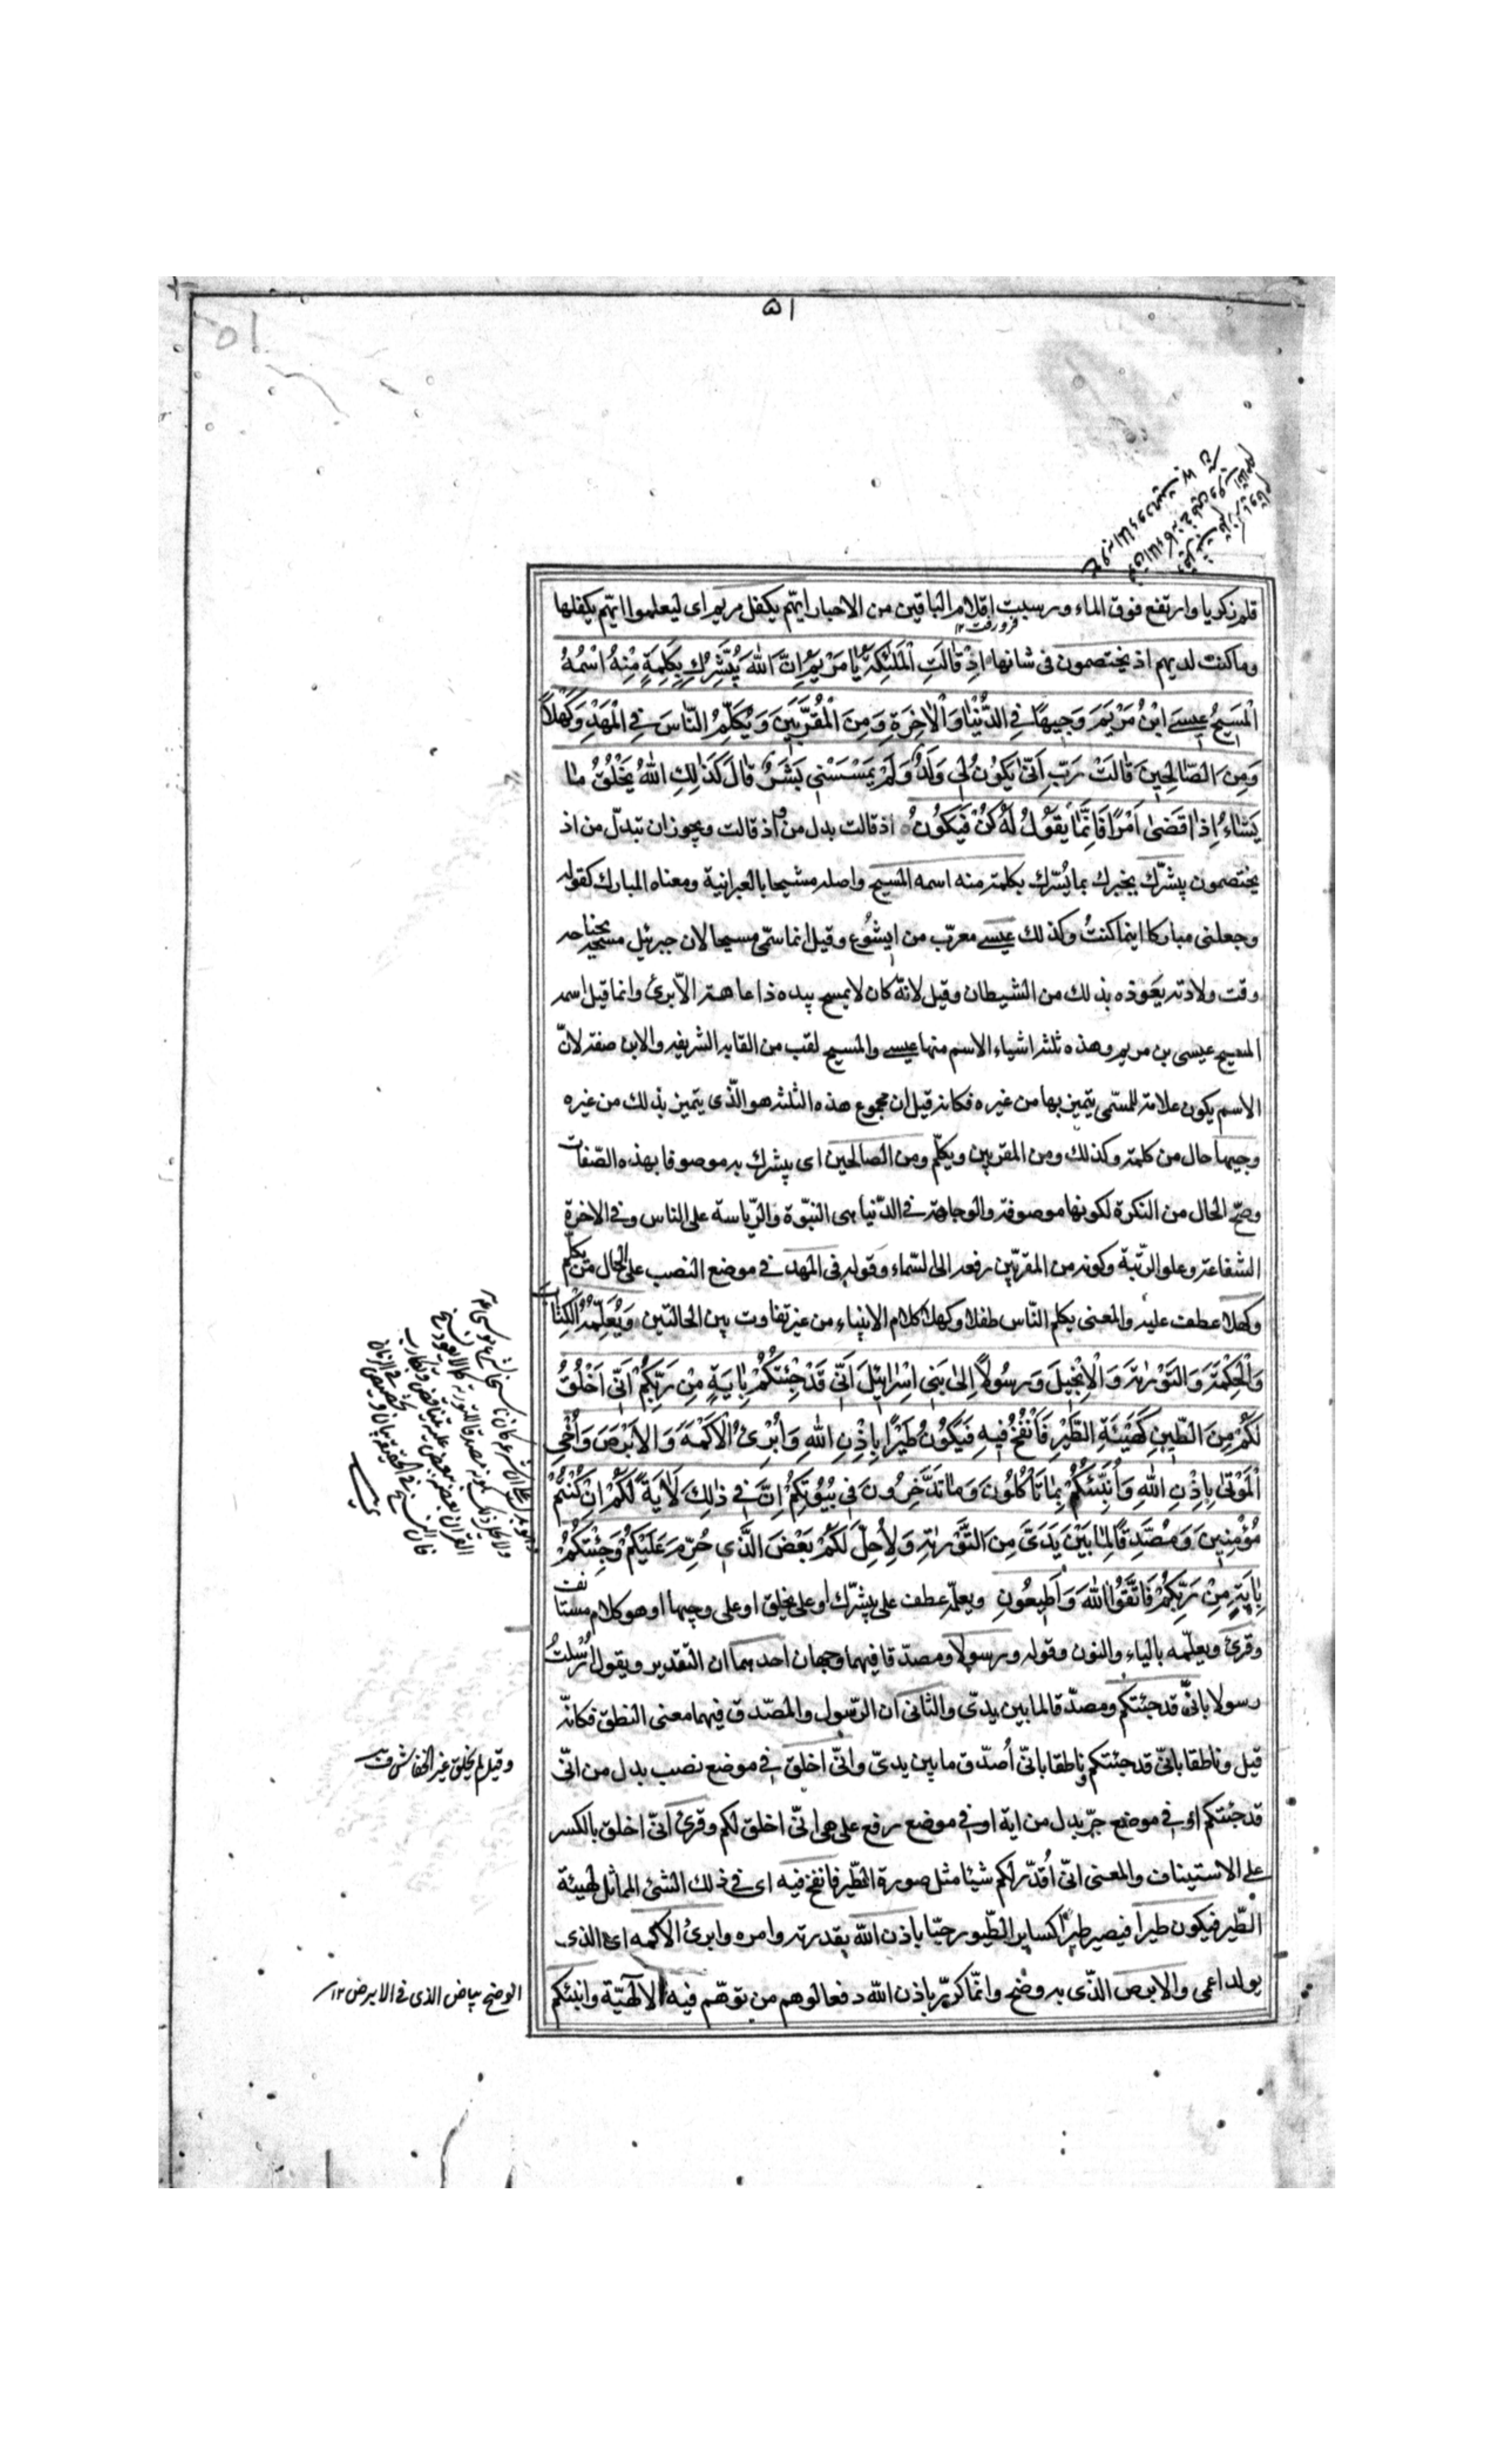 ۵۱
قلم زكريا وارتفع فوق الماء ورسبت اقلام الباقين من الاحبار ايّهم يكفل مريم اى ليعلموا ايّهم يكفلها
فرو رفت ۱۲
وما كنت لديهم اذ يختصمون فى شانها اِذْ قالَتِ الْمَلٰئِكَةُ يا مَرْيَمُ اِنَّ اللهَ يُبَشِّرُكِ بِكَلِمَةٍ مِنْهُ اسْمُهُ
الْمَسيحُ عيسَى ابْنُ مَرْيَمَ وَجيهًا فِي الدُّنْيا وَالْاٰخِرَةِ وَمِنَ الْمُقَرَّبينَ وَيُكَلِّمُ النّاسَ فِي الْمَهْدِ وَكَهْلاً
وَمِنَ الصّالِحينَ قالَتْ رَبِّ اَنّٰى يَكُونُ لي وَلَدٌ وَلَمْ يَمْسَسْني بَشَرٌ قالَ كَذٰلِكِ اللهُ يَخْلُقُ ما
يَشاءُ اِذا قَضٰى اَمْرًا فَاِنَّما يَقُولُ لَهُ كُنْ فَيَكُونُ اذ قالت بدل من و اذ قالت ويجوز ان تبدّل من اذ
يختصمون يبشّرك يخبرك بما يسّرك بكلمة منه اسمه المسيح واصله مشيحا بالعبرانية ومعناه المبارك كقوله
وجعلنى مباركا اينما كنتُ وكذلك عيسى معرّب من ايشُوع وقيل انما سمّى مسيحا لان جبرئيل مسحه بجناحه
وقت ولادته يعوّذه بذلك من الشيطان وقيل لانّه كان لا يمسح بيده ذا عاهة الّا برئ وانما قيل اسمه
المسيح عيسى بن مريم وهذه ثلثة اشياء الاسم منها عيسى والمسيح لقب من القابه الشريفة والابن صفة لانّ
الاسم يكون علامة للمسّمى يتميز بها من غيره فكانه قيل ان مجموع هذه الثلثة هو الّذى يتميز بذلك من غيره
وجيها حال من كلمة وكذلك ومن المقربين ويكلّم ومن الصالحين اى يبشرك به موصوفا بهذه الصّفات
وصحّ الحال من النكرة لكونها موصوفة والوجاهة فى الدّنيا هى النبّوة والرّياسة على الناس وفى الاخرة
الشفاعة وعلو الرّتبة وكونه من المقرّبين رفعه الى السّماء وقوله فى المهد فى موضع النصب على الحال من يكلّم
وكهلا عطف عليه والمعنى يكلم النّاس طفلا وكهلا كلام الانبياء من غير تفاوت بين الحالتين وَيُعَلِّمُهُ الْكِتابَ
وَالْحِكْمَةَ وَالتَّوْرٰيةَ وَالْاِنْجيلَ وَرَسُولاً اِلىٰ بَني اِسْرائيلَ اَنّي قَدْ جِئْتُكُمْ بِاٰيَةٍ مِنْ رَبِّكُمْ اَنّي اَخْلُقُ
لَكُمْ مِنَ الطّينِ كَهَيْئَةِ الطَّيْرِ فَاَنْفُخُ فيهِ فَيَكُونُ طَيْرًا بِاِذْنِ اللهِ وَاُبْرِئُ الْاَكْمَهَ وَالْاَبْرَصَ وَاُحْيِ
الْمَوْتٰى بِاِذْنِ اللهِ وَاُنَبِّئُكُمْ بِما تَأْكُلُونَ وَما تَدَّخِرُونَ في بُيُوتِكُمْ اِنَّ في ذٰلِكَ لَاٰيَةً لَكُمْ اِنْ كُنْتُمْ
مُؤْمِنينَ وَمُصَدِّقًا لِما بَيْنَ يَدَيَّ مِنَ التَّوْرٰيةِ وَلِاُحِلَّ لَكُمْ بَعْضَ الَّذي حُرِّمَ عَلَيْكُمْ وَجِئْتُكُمْ
بِاٰيَةٍ مِنْ رَبِّكُمْ فَاتَّقُوا اللهَ وَاَطيعُونِ ويعلّمه عطف على يبشّرك او على يخلق او على وجيها او هو كلام مستانف
وقرئ ويعلّمه بالياء والنون وقوله ورسولا ومصدّقا فيهما وجهان احدهما ان التقدير ويقول اُرْسلتُ
رسولا بانّى قد جئتكم ومصدّقا لما بين يدىّ والثانى ان الرّسول والمصّدق فيهما معنى النطق فكانّه
قيل وناطقا بانّى قد جئتكم وناطقا بانّى اُصدّق ما بين يدىّ وانّى اخلق فى موضع نصب بدل من انّى
قد جئتكم او فى موضع جرّ بدل من اية او فى موضع رفع على هى انّى اخلق لكم وقرئ انّى اخلق بالكسر
على الاستيناف والمعنى انّى اُقدّر لكم شيئا مثل صورة الطّير فانفخ فيه اى فى ذلك الشئ المماثل لهيئة
الطّير فيكون طيرا فيصير طيرًا كساير الطّيور حيّا باذن الله بقدرته وامره وابرئ الاكمه اى الذى
يولد اعمى والابرص الذّى به وضح وانّما كرّر باذن الله دفعا لوهم من توهّم فيه الالٰهيّة وانبئكم
وقيل لم يخلق غير الخفاش
الوضح بياض الذى فى الابرص ۱۲